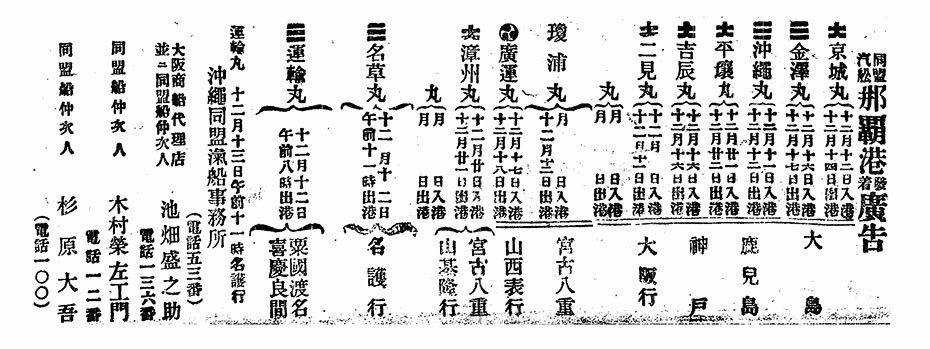 同盟汽船那覇港發着廣告
京城丸 十二月十二日入港 十二月十四日出港
金澤丸 十二月十六日入港 十二月十七日出港
沖繩丸 十二月廿一日入港 十二月廿三日出港
平壤丸
吉辰丸 十二月十六日出港
二見丸
大島
鹿兒島
神戸
大阪行
丸 月 日入港 月 日出港
瓊浦丸 月 日入港
宮古八重
廣運丸 十二月十七日入港 十二月十八日出港
山西表行
漳州丸 十二月廿日入港 十二月廿一日出港
宮古八重山基隆行
丸 月 日入港 月 日出港
名草丸 十二月十二日午前十一時出港 名護行
運輸丸 十二月十二日午前八時出港 粟國渡名喜慶良間
運輸丸 十二月十三日午前十一時名護行
沖繩同盟滊船事務所
(電話五三番)
大阪商船代理店並ニ同盟船仲次人 池畑盛之助
電話一三六番
同盟船仲次人 木村榮左工門
電話一二番
同盟船仲次人 杉原大吾
(電話一〇〇)